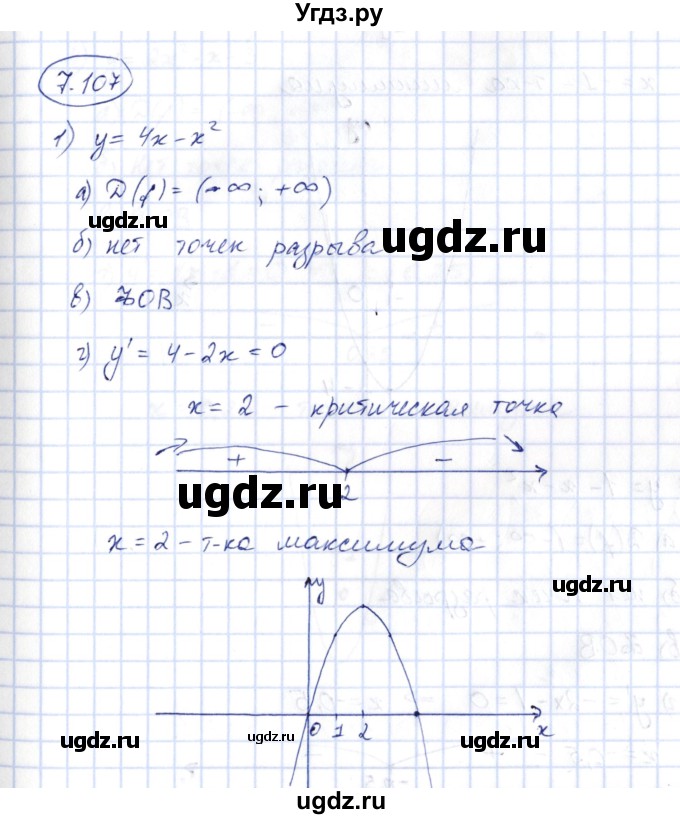 Угдз.ру
7.107
1) y = 4x - x²
а) D(f) = (-∞; +∞)
ugdz.ru
ugdz.ru
б) нет точек разрыва
в) ЗОВ
г) y' = 4 - 2x = 0
x = 2 - критическая точка
+ -
2
ugdz.ru
x = 2 - т-ка максимума
y
ugdz.ru
0 1 2 x
ugdz.ru
ugdz.ru
ugdz.ru
ugdz.ru